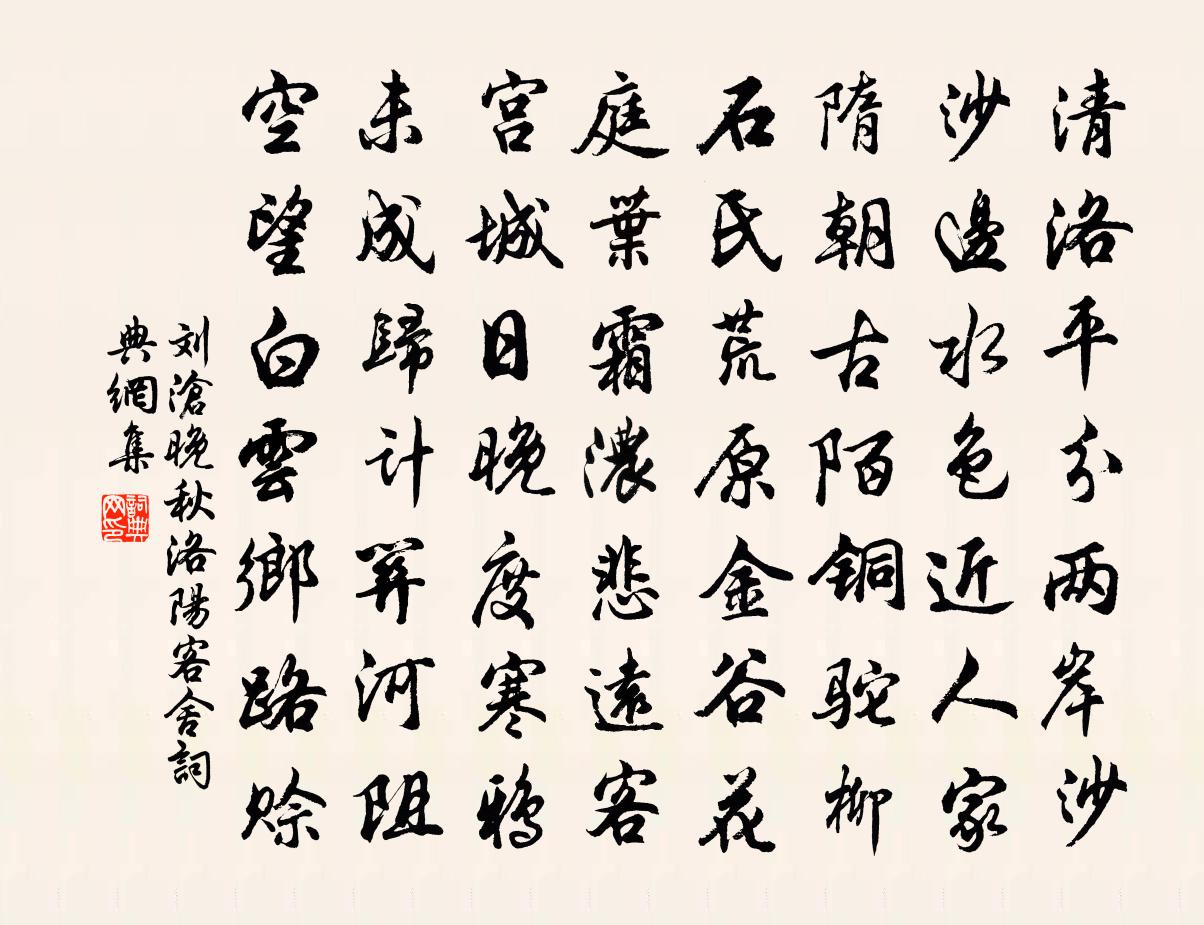 清洛平分两岸沙
沙邊水色近人家
隋朝古陌铜驼柳
石氏荒原金谷花
庭葉霜濃悲遠客
宮城日晚度寒鴉
未成歸计关河阻
空望白雲鄉路赊
刘滄晚秋洛陽客舍詞
典網集
詞典
网印